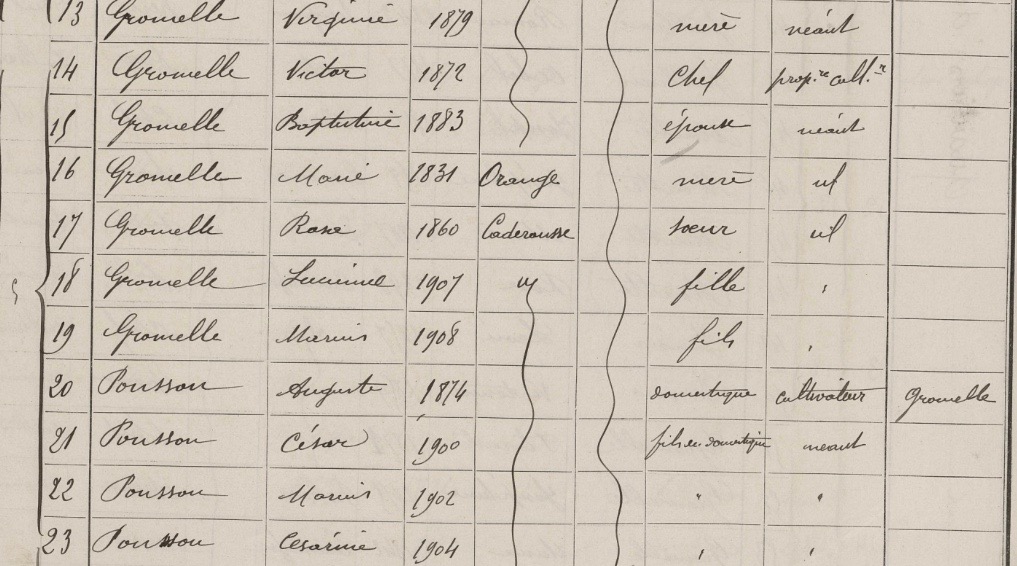 13 Gromelle Virginie 1879 mère néant
14 Gromelle Victor 1872 Chef prop.re cult.r
15 Gromelle Baptistine 1883 épouse néant
16 Gromelle Marie 1831 Orange mère id
17 Gromelle Rose 1860 Caderousse soeur id
18 Gromelle Lucienne 1907 id fille "
19 Gromelle Marius 1908 fils "
20 Pousson Auguste 1874 domestique cultivateur Gromelle
21 Pousson César 1900 fils du domestique néant
22 Pousson Marius 1902 " "
23 Pousson Césarine 1904 " "